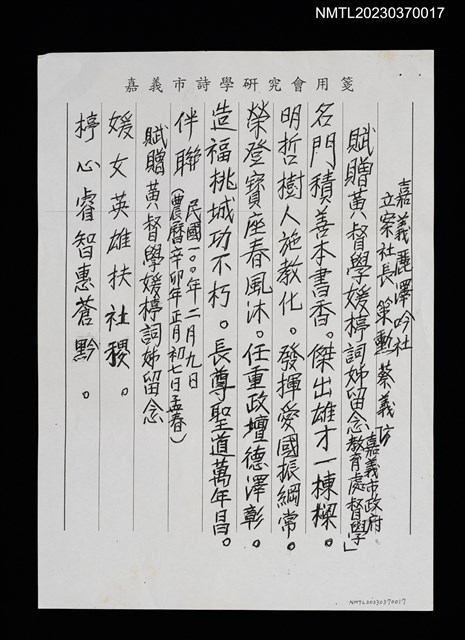 NMTL20230370017
嘉義市詩學研究會用箋
嘉義麗澤吟社
立案社長 策勳 蔡義方
賦贈黃督學媛楟詞姊留念 嘉義市政府教育處督學」
名門積善本書香。傑出雄才一棟樑。
明哲樹人施教化。發揮愛國振綱常。
榮登寶座春風沐。任重政壇德澤彰。
造福桃城功不朽。長尊聖道萬年昌。
伴聯 民國一〇〇年二月九日
(農曆辛卯年正月初七日孟春)
賦贈黃督學媛楟詞姊留念
媛女英雄扶社稷。
楟心睿智惠蒼黔。
NMTL20230370017